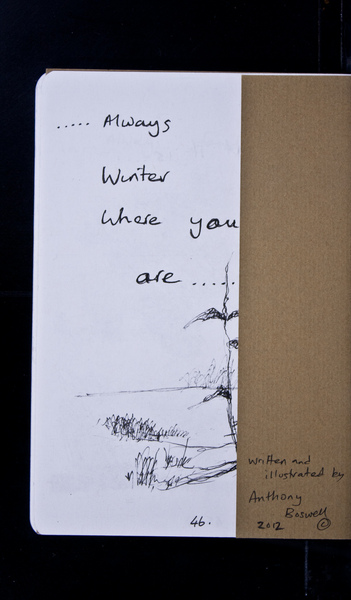 ..... Always
Winter
Where you
are .....
46.
Written and
illustrated by
Anthony
Boswell
2012 ©